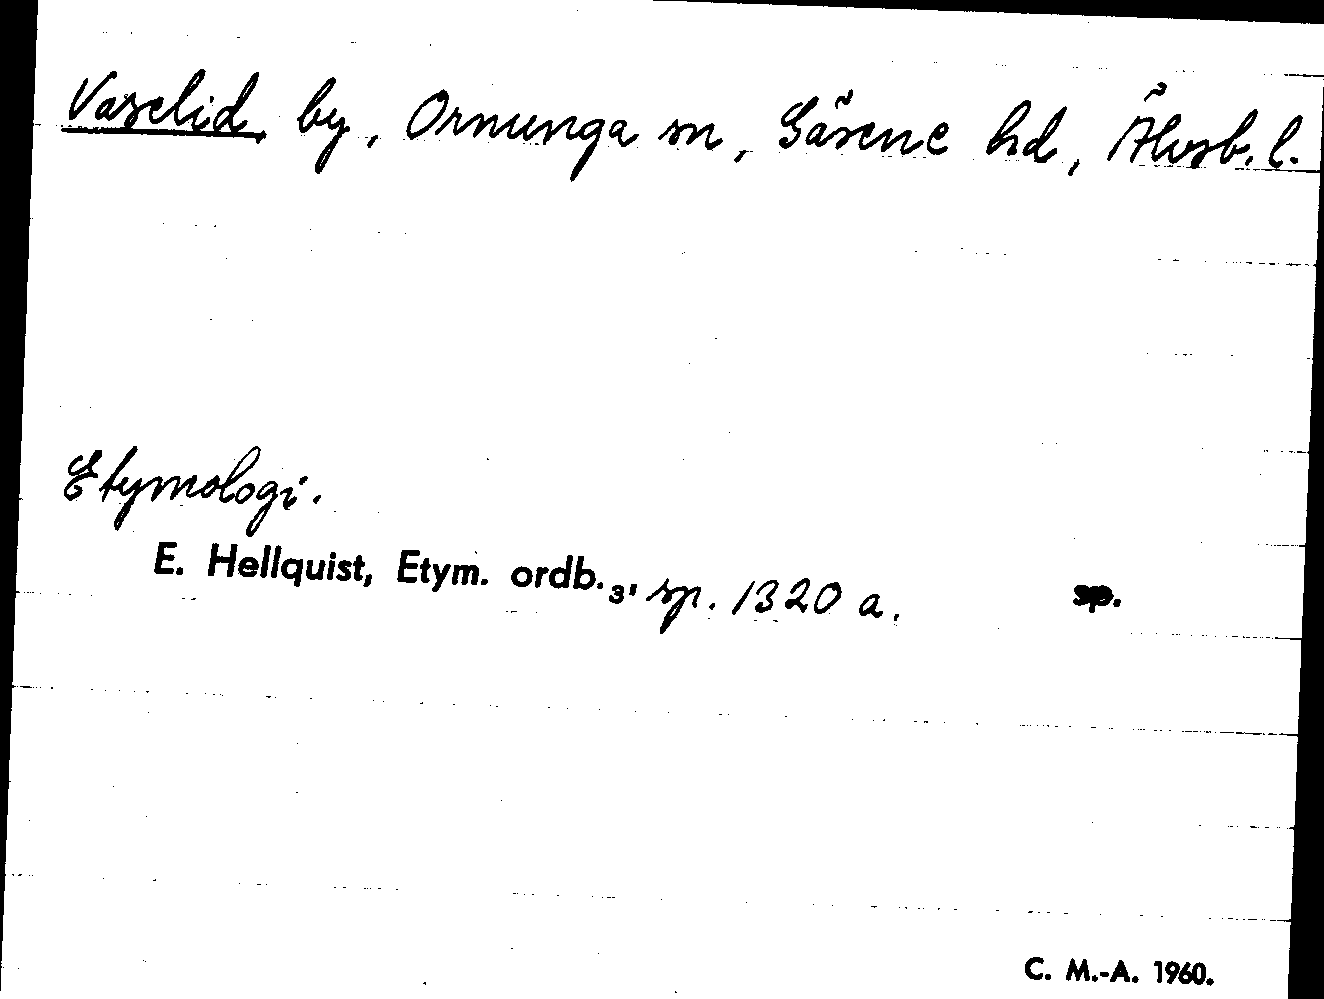 Vaselid, by, Ornunga sn, Gäsene hd, Älvsb. l.
Etymologi.
E. Hellquist, Etym. ordb. 3, sp. 1320 a. sp.
C. M.-A. 1960.